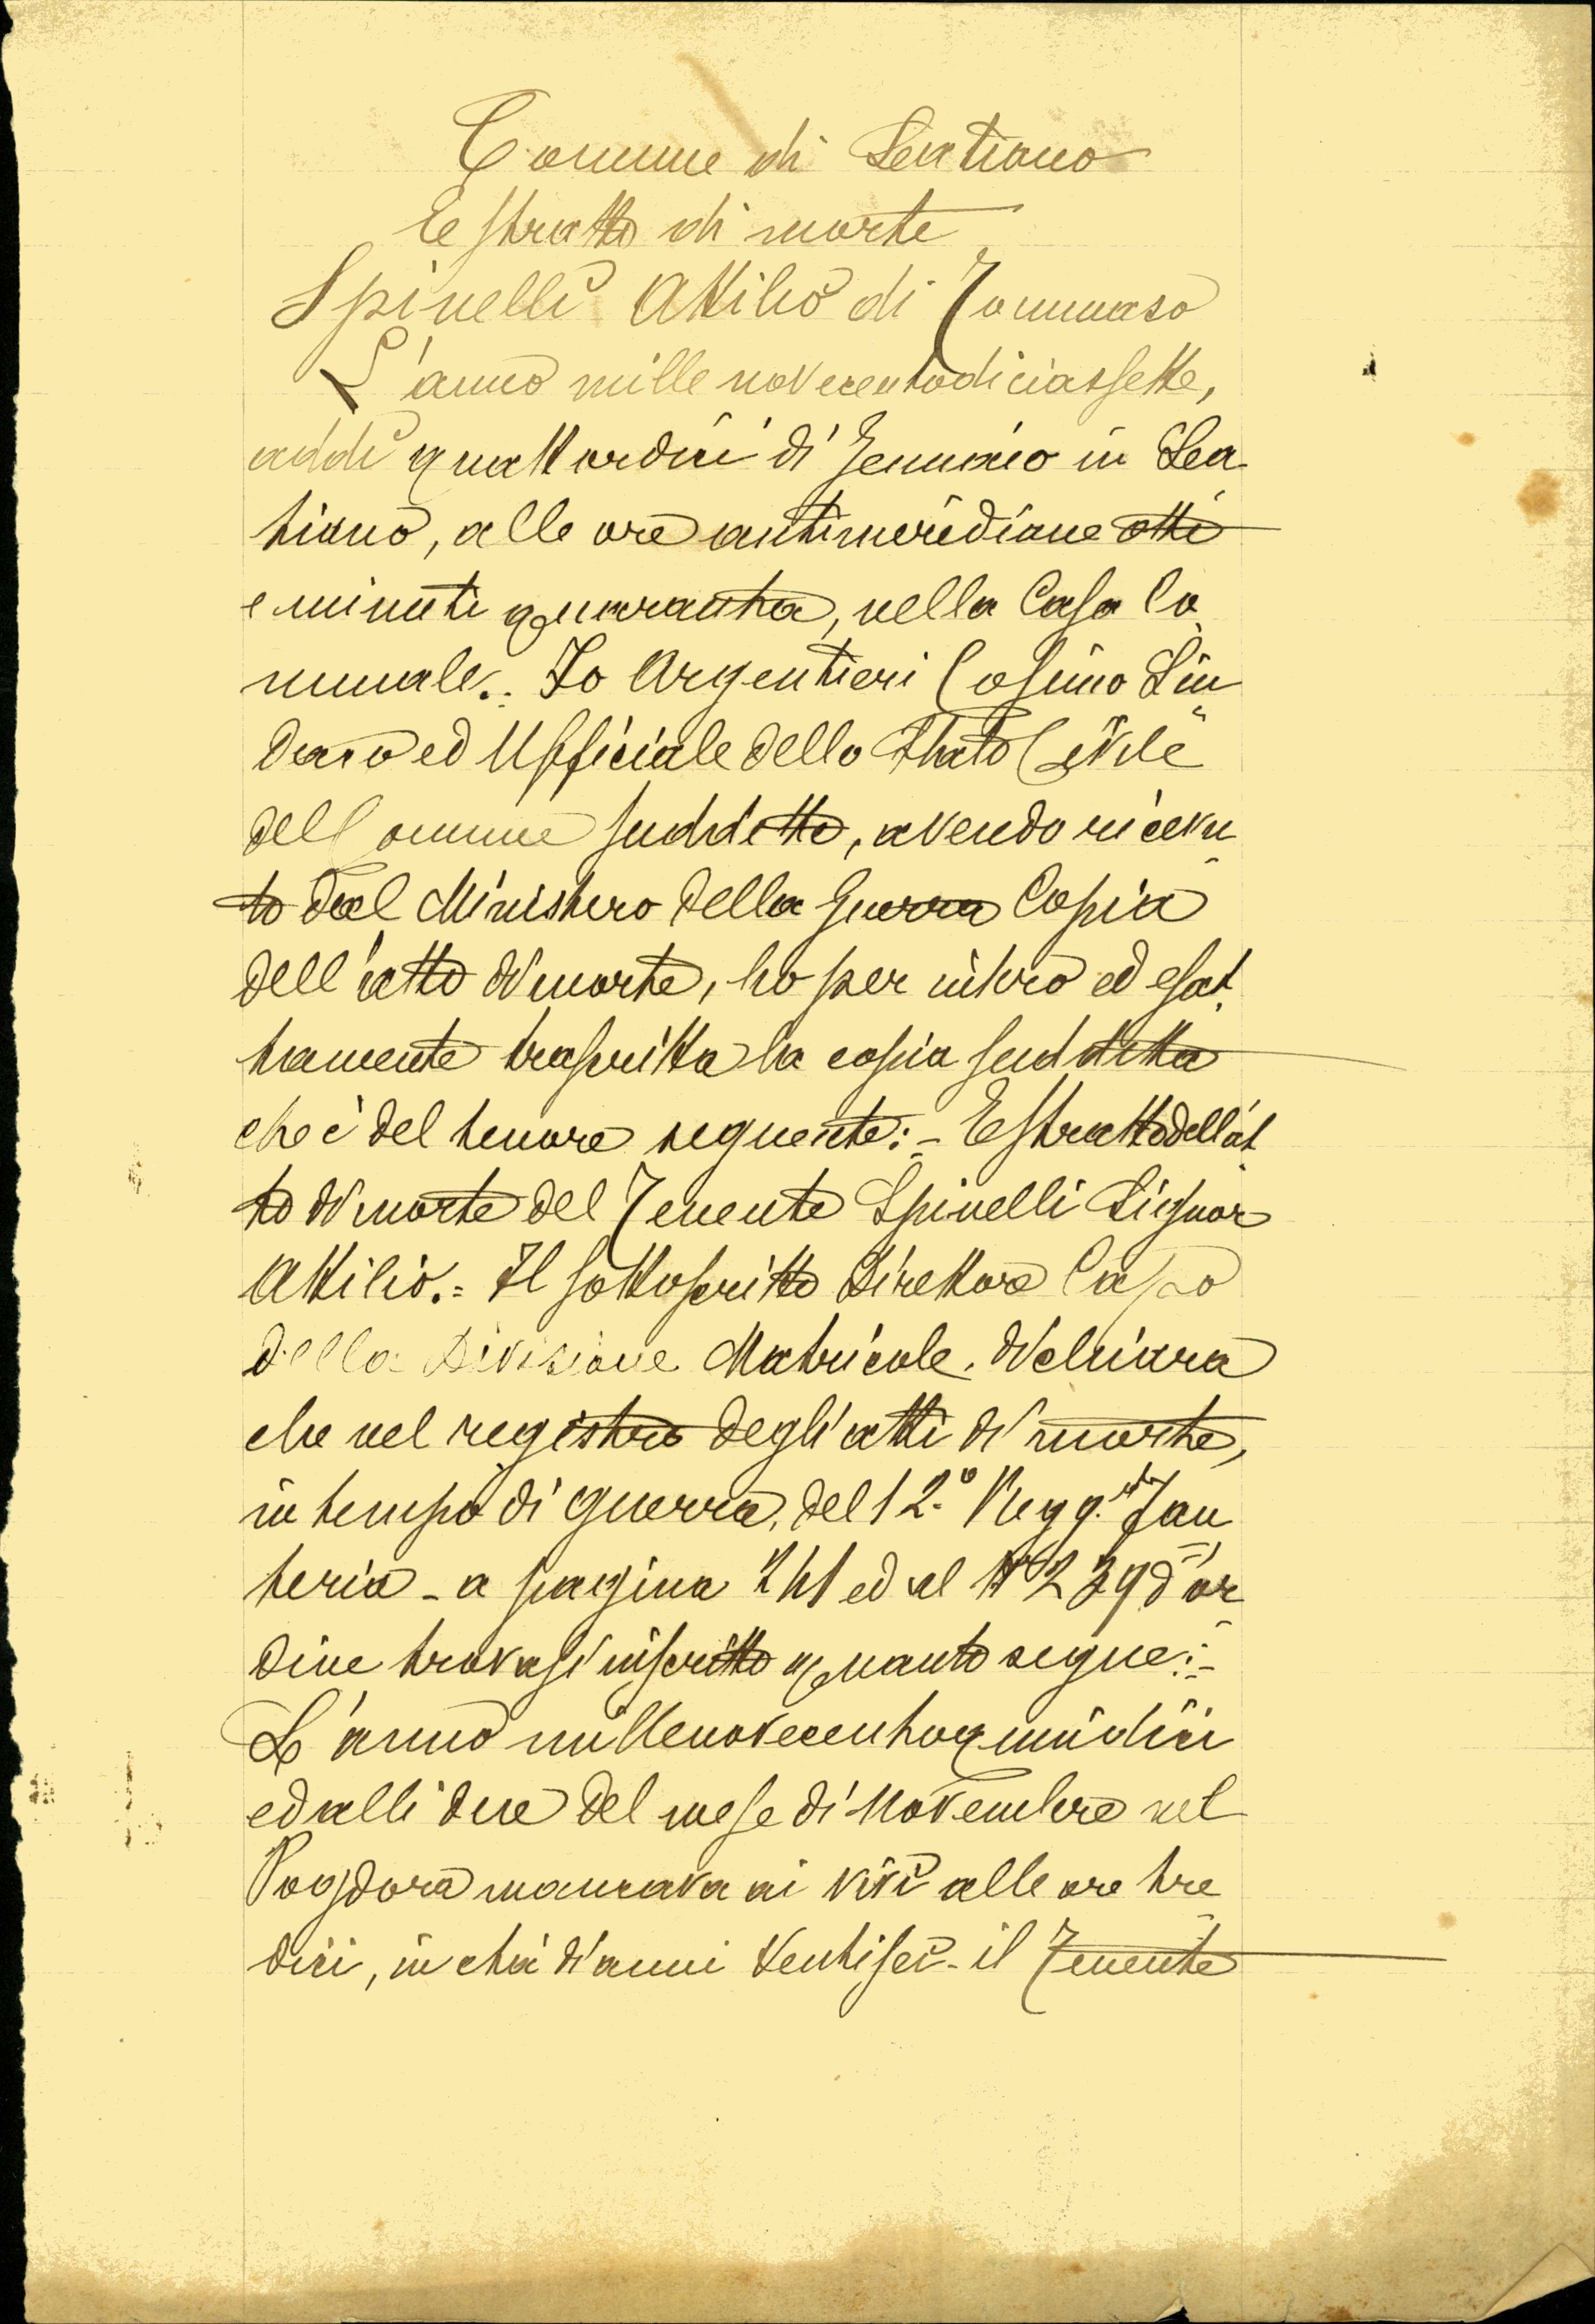 Comune di Latiano
Estratto di morte
Spinelli Attilio di Tommaso
L'anno mille novecentodiciassette,
addì quattordici di Gennaio in La
tiano, alle ore antimeridiane otto
e minuti quaranta, nella Casa Co
munale. Io Argentieri Cosimo Sin
daco ed Ufficiale dello Stato Civile
del Comune suddetto, avendo ricevu
to dal Ministero della Guerra Copia
dell'atto di morte, ho per intero ed esat
tamente trascritta la copia suddetta
che è del tenore seguente: - Estratto dell'at
to di morte del Tenente Spinelli Signor
Attilio.= Il sottoscritto Direttore Capo
della Divisione Matricole. dichiara
che nel registro degli atti di morte,
in tempo di guerra, del 12.º Regg. Fan
teria - a pagina 241 ed al Nº 239 d'or
dine trovasi inscritto quanto segue:-
L'anno millenovecentoquindici
ed alli due del mese di Novembre nel
Pogdora mancava ai vivi alle ore tre
dici, in età d'anni ventisei - il Tenente